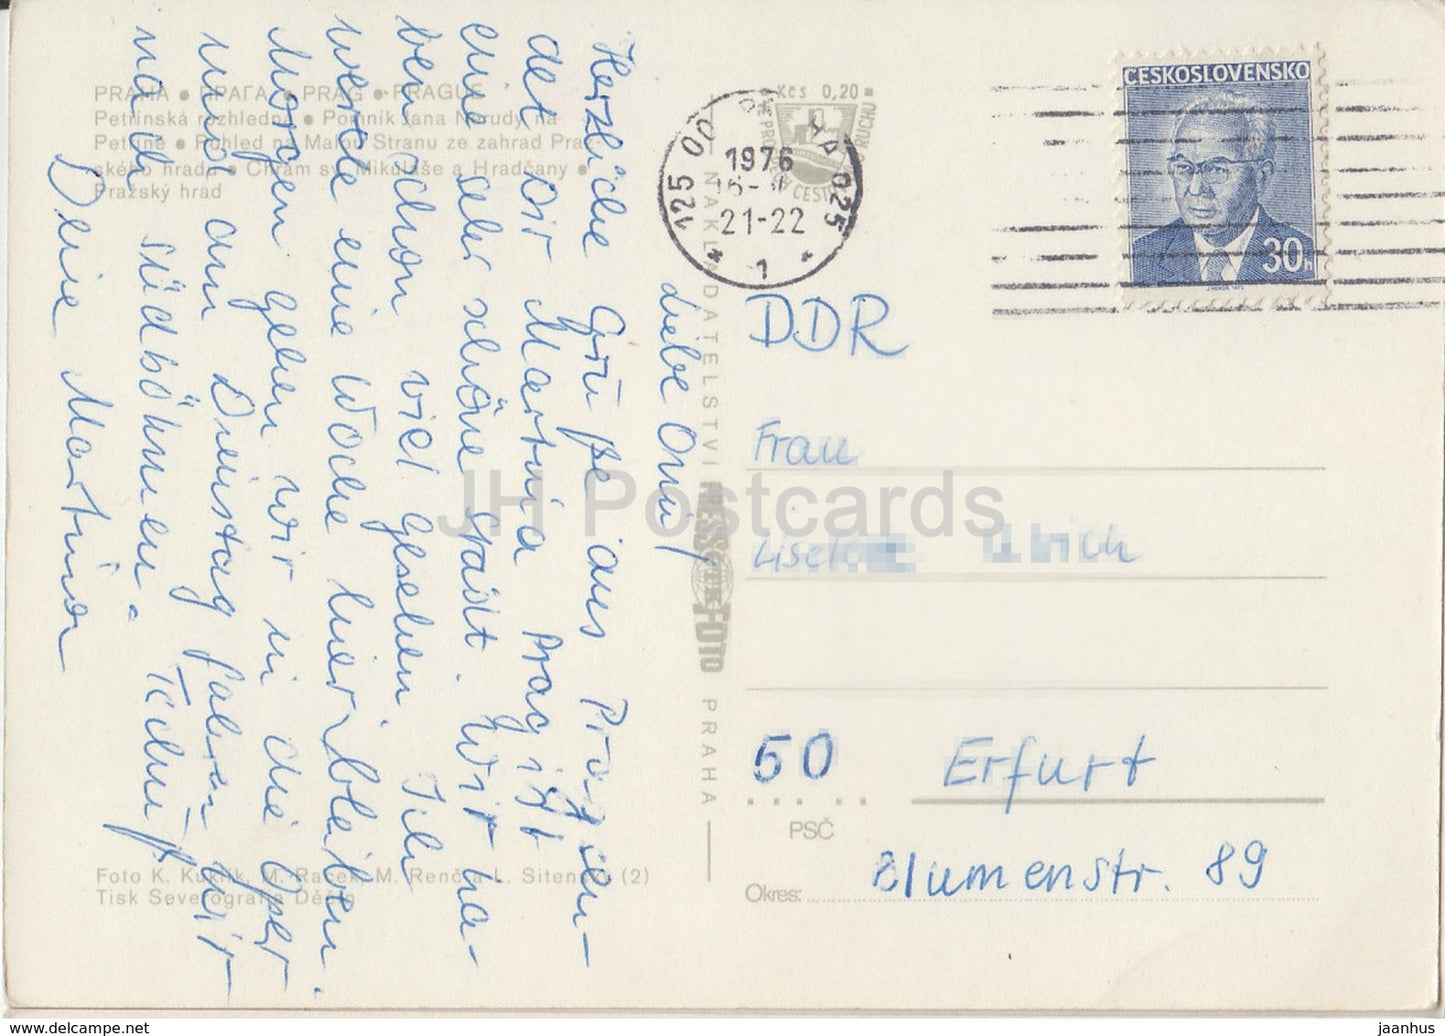 PRAHA • ПРАГА • PRAG • PRAGUE
Petřínská rozhledna • Pomník Jana Nerudy na
Petříně • Pohled na Malou Stranu ze zahrad Praž-
ského hradu • Chrám sv. Mikuláše a Hradčany •
Pražský hrad
Liebe Omi,
Herzliche Grüße aus Prag sen-
det Dir Martina Prag ist
eine sehr schöne Stadt. Wir ha-
ben schon viel gesehen. Ich
werde eine Woche hier bleiben.
Morgen gehen wir in die Oper
und am Dienstag fahren wir
nach Südböhmen.
Deine Martina
Foto K. Kuklík, M. Raček, M. Renč a L. Sitenský (2)
Tisk Severografia Děčín
NAKLADATELSTVÍ PRESSFOTO PRAHA
Kčs 0,20
1976
21-22
1
125
025
CESKOSLOVENSKO
30h
DDR
Frau
50 Erfurt
PSČ
Blumenstr. 89
Okres:
JH Postcards
www.delcampe.net
jaanhus